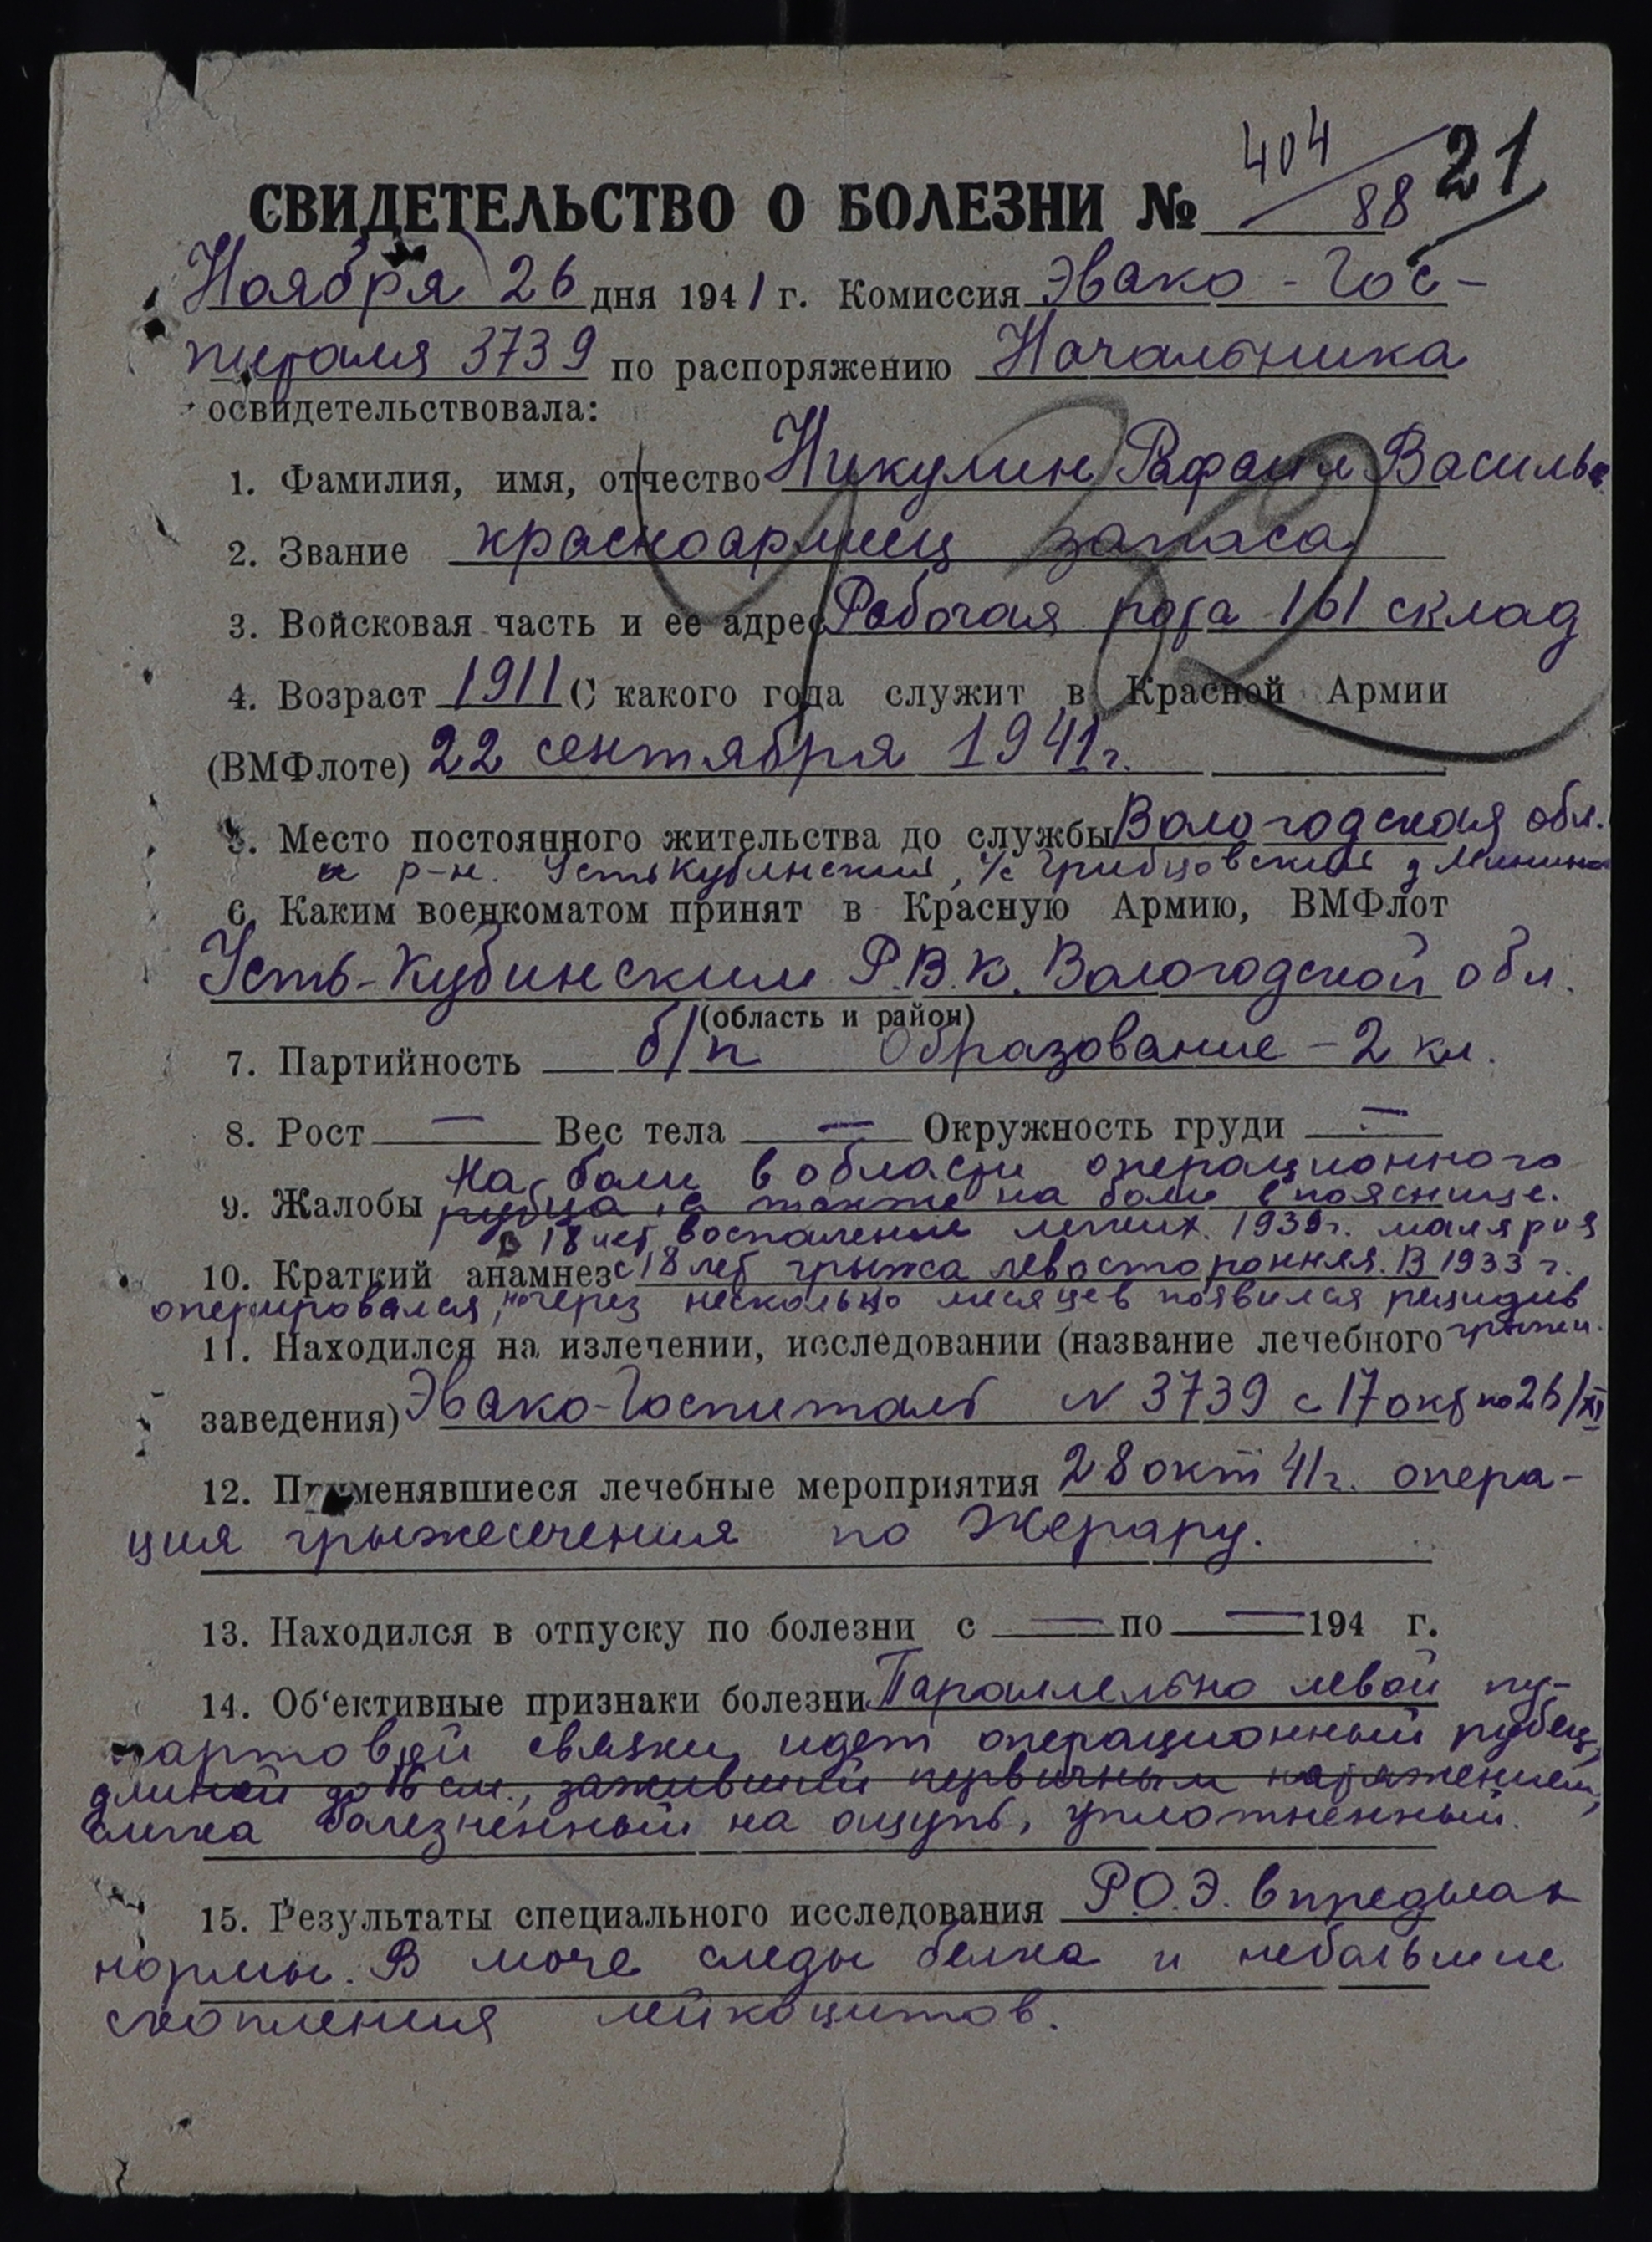 404/88 21
СВИДЕТЕЛЬСТВО О БОЛЕЗНИ №
Ноября 26 дня 1941 г. Комиссия Эвако-Гос-
питаля 3739 по распоряжению Начальника
освидетельствовала:
1. Фамилия, имя, отчество Никулин Рафаил Василье
2. Звание красноармеец запаса
3. Войсковая часть и ее адрес Рабочая рота 161 склад
4. Возраст 1911 С какого года служит в Красной Армии
(ВМФлоте) 22 сентября 1941 г.
5. Место постоянного жительства до службы Вологодская обл.
р-н. Усть Кубинский, с/с Грибцовский д Минино
6. Каким военкоматом принят в Красную Армию, ВМФлот
Усть-Кубинским Р.В.К. Вологодской обл.
(область и район)
7. Партийность б/п Образование - 2 кл.
8. Рост — Вес тела — Окружность груди —
На боли в области операционного
9. Жалобы рубца, а также на боли в пояснице.
В 18 лет воспаление легких. 1939г. малярия
10. Краткий анамнез с 18 лет грыжа левосторонняя. В 1933 г.
оперировался, но через несколько месяцев появился рецидив
11. Находился на излечении, исследовании (название лечебного грыжи.
заведения) Эвако-Госпиталь N 3739 с 17 окт по 26/XI
12. Применявшиеся лечебные мероприятия 28 окт 41г. опера-
ция грыжесечения по Жерару.
13. Находился в отпуску по болезни с — по — 194 г.
14. Об'ективные признаки болезни Параллельно левой пу-
партовой связки идет операционный рубец,
длиной до 16 см., заживший первичным натяжением,
слегка болезненный на ощупь, уплотненный.
15. Результаты специального исследования Р.О.Э. в пределах
нормы. В моче следы белка и небольшие
скопления лейкоцитов.